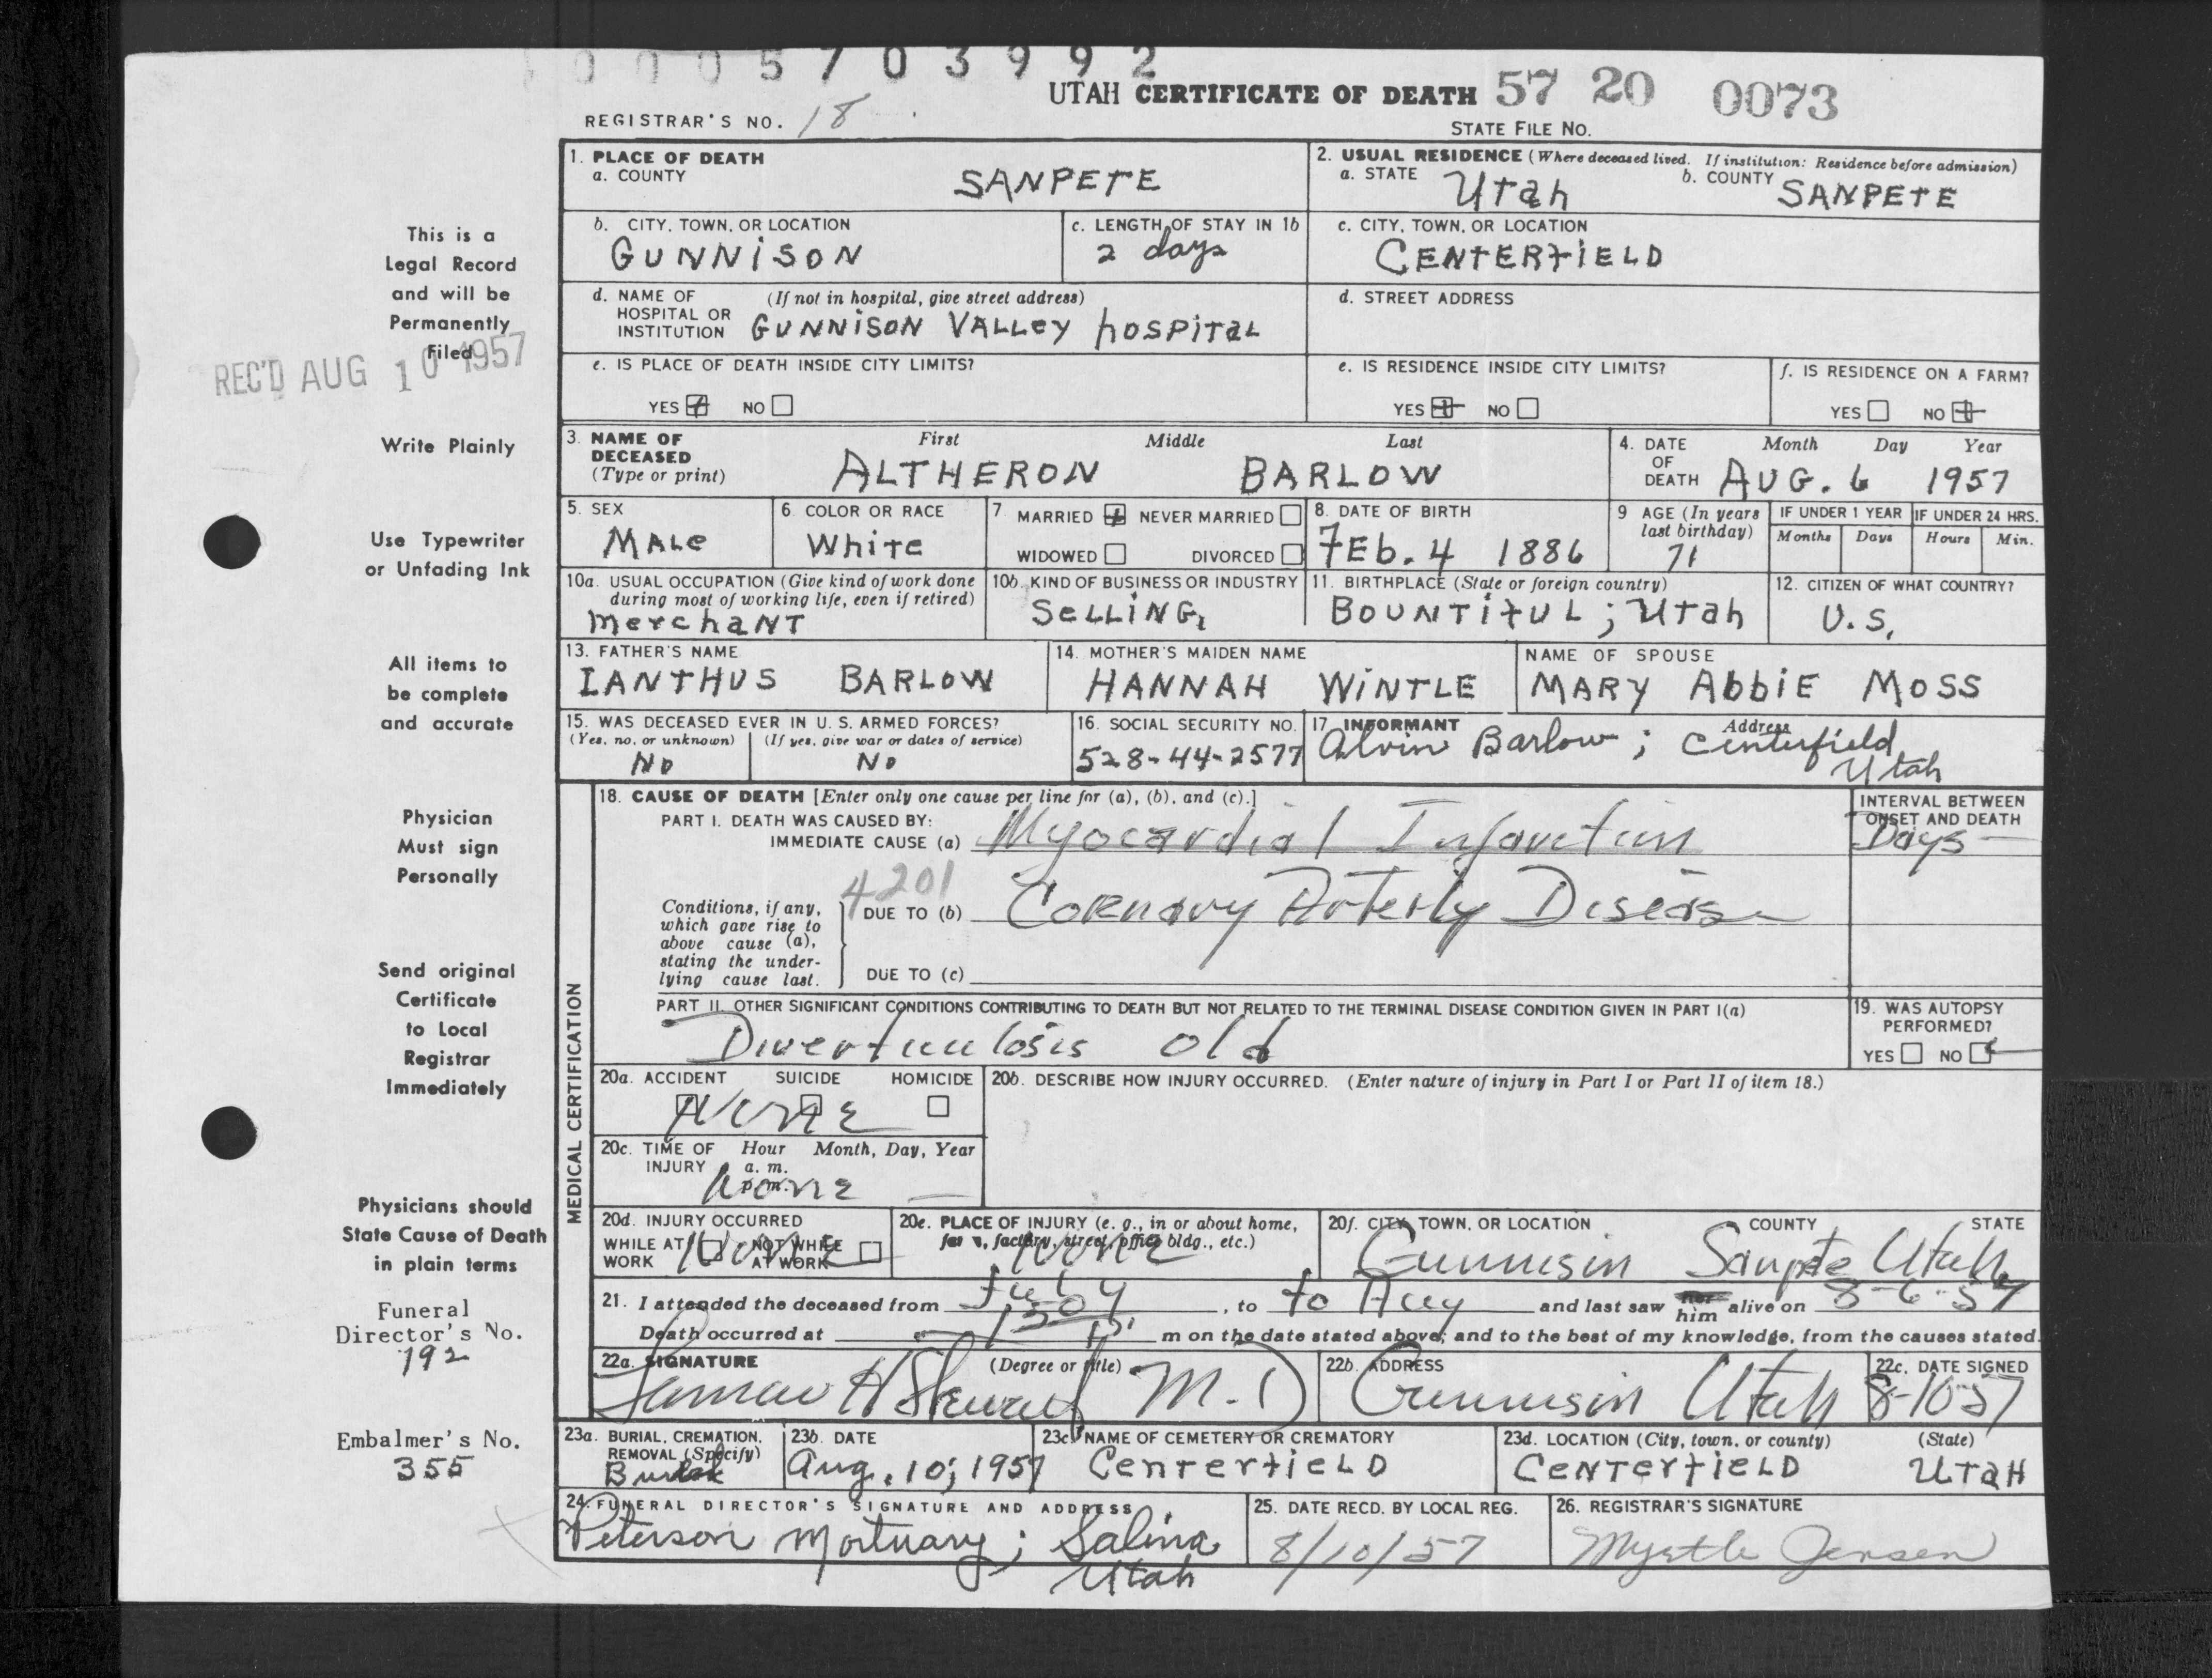 0005703992
UTAH CERTIFICATE OF DEATH 57 20 0073
REGISTRAR'S NO. 18
STATE FILE NO.
This is a
Legal Record
and will be
Permanently
Filed
REC'D AUG 10 1957
Write Plainly
Use Typewriter
or Unfading Ink
All items to
be complete
and accurate
Physician
Must sign
Personally
Send original
Certificate
to Local
Registrar
Immediately
Physicians should
State Cause of Death
in plain terms
Funeral
Director's No.
192
Embalmer's No.
355
1. PLACE OF DEATH
a. COUNTY SANPETE
2. USUAL RESIDENCE (Where deceased lived. If institution: Residence before admission)
a. STATE Utah b. COUNTY SANPETE
b. CITY, TOWN, OR LOCATION
GUNNISON
c. LENGTH OF STAY IN 1b
2 days
c. CITY, TOWN, OR LOCATION
CENTERFIELD
d. NAME OF HOSPITAL OR INSTITUTION (If not in hospital, give street address)
GUNNISON VALLEY hOSPITAL
d. STREET ADDRESS
e. IS PLACE OF DEATH INSIDE CITY LIMITS?
YES NO
e. IS RESIDENCE INSIDE CITY LIMITS?
YES NO
f. IS RESIDENCE ON A FARM?
YES NO
3. NAME OF DECEASED (Type or print)
First Middle Last
ALTHERON BARLOW
4. DATE OF DEATH Month Day Year
AUG. 6 1957
5. SEX
MALE
6. COLOR OR RACE
White
7. MARRIED NEVER MARRIED
WIDOWED DIVORCED
8. DATE OF BIRTH
FEb. 4 1886
9 AGE (In years last birthday)
71
IF UNDER 1 YEAR
Months Days
IF UNDER 24 HRS.
Hours Min.
10a. USUAL OCCUPATION (Give kind of work done
during most of working life, even if retired)
MerchaNT
10b. KIND OF BUSINESS OR INDUSTRY
SELLING,
11. BIRTHPLACE (State or foreign country)
BOUNTIFUL; Utah
12. CITIZEN OF WHAT COUNTRY?
U.S.
13. FATHER'S NAME
IANTHUS BARLOW
14. MOTHER'S MAIDEN NAME
HANNAH WINTLE
NAME OF SPOUSE
MARY AbbiE MOSS
15. WAS DECEASED EVER IN U. S. ARMED FORCES?
(Yes, no, or unknown) (If yes, give war or dates of service)
NO NO
16. SOCIAL SECURITY NO.
528-44-2577
17 INFORMANT Address
Alvin Barlow; Centerfield
Utah
MEDICAL CERTIFICATION
18. CAUSE OF DEATH [Enter only one cause per line for (a), (b), and (c).]
PART I. DEATH WAS CAUSED BY:
IMMEDIATE CAUSE (a) Myocardial Infarction
INTERVAL BETWEEN
ONSET AND DEATH
Days
4201
Conditions, if any,
which gave rise to
above cause (a),
stating the under-
lying cause last.
DUE TO (b) Cornary Arterly Disease
DUE TO (c)
PART II. OTHER SIGNIFICANT CONDITIONS CONTRIBUTING TO DEATH BUT NOT RELATED TO THE TERMINAL DISEASE CONDITION GIVEN IN PART I(a)
old
19. WAS AUTOPSY
PERFORMED?
YES NO
20a. ACCIDENT SUICIDE HOMICIDE
None
20b. DESCRIBE HOW INJURY OCCURRED. (Enter nature of injury in Part I or Part II of item 18.)
20c. TIME OF INJURY Hour Month, Day, Year
a. m.
p. m.
None
20d. INJURY OCCURRED
WHILE AT WORK NOT WHILE AT WORK
None
20e. PLACE OF INJURY (e. g., in or about home,
farm, factory, street, office bldg., etc.)
None
20f. CITY, TOWN, OR LOCATION COUNTY STATE
Gunnison Sanpete Utah
21. I attended the deceased from July, to to Aug and last saw her him alive on 8-6-57
Death occurred at m on the date stated above; and to the best of my knowledge, from the causes stated.
22a. SIGNATURE (Degree or title)
Lamar H Stewart M.D
22b. ADDRESS
Gunnison Utah
22c. DATE SIGNED
8-10-57
23a. BURIAL, CREMATION,
REMOVAL (Specify)
Burial
23b. DATE
Aug. 10, 1957
23c. NAME OF CEMETERY OR CREMATORY
CenterfieLD
23d. LOCATION (City, town, or county) (State)
CENTerfieLD UTaH
24. FUNERAL DIRECTOR'S SIGNATURE AND ADDRESS
Peterson Mortuary; Salina
Utah
25. DATE RECD. BY LOCAL REG.
8/10/57
26. REGISTRAR'S SIGNATURE
Myrtle Jensen